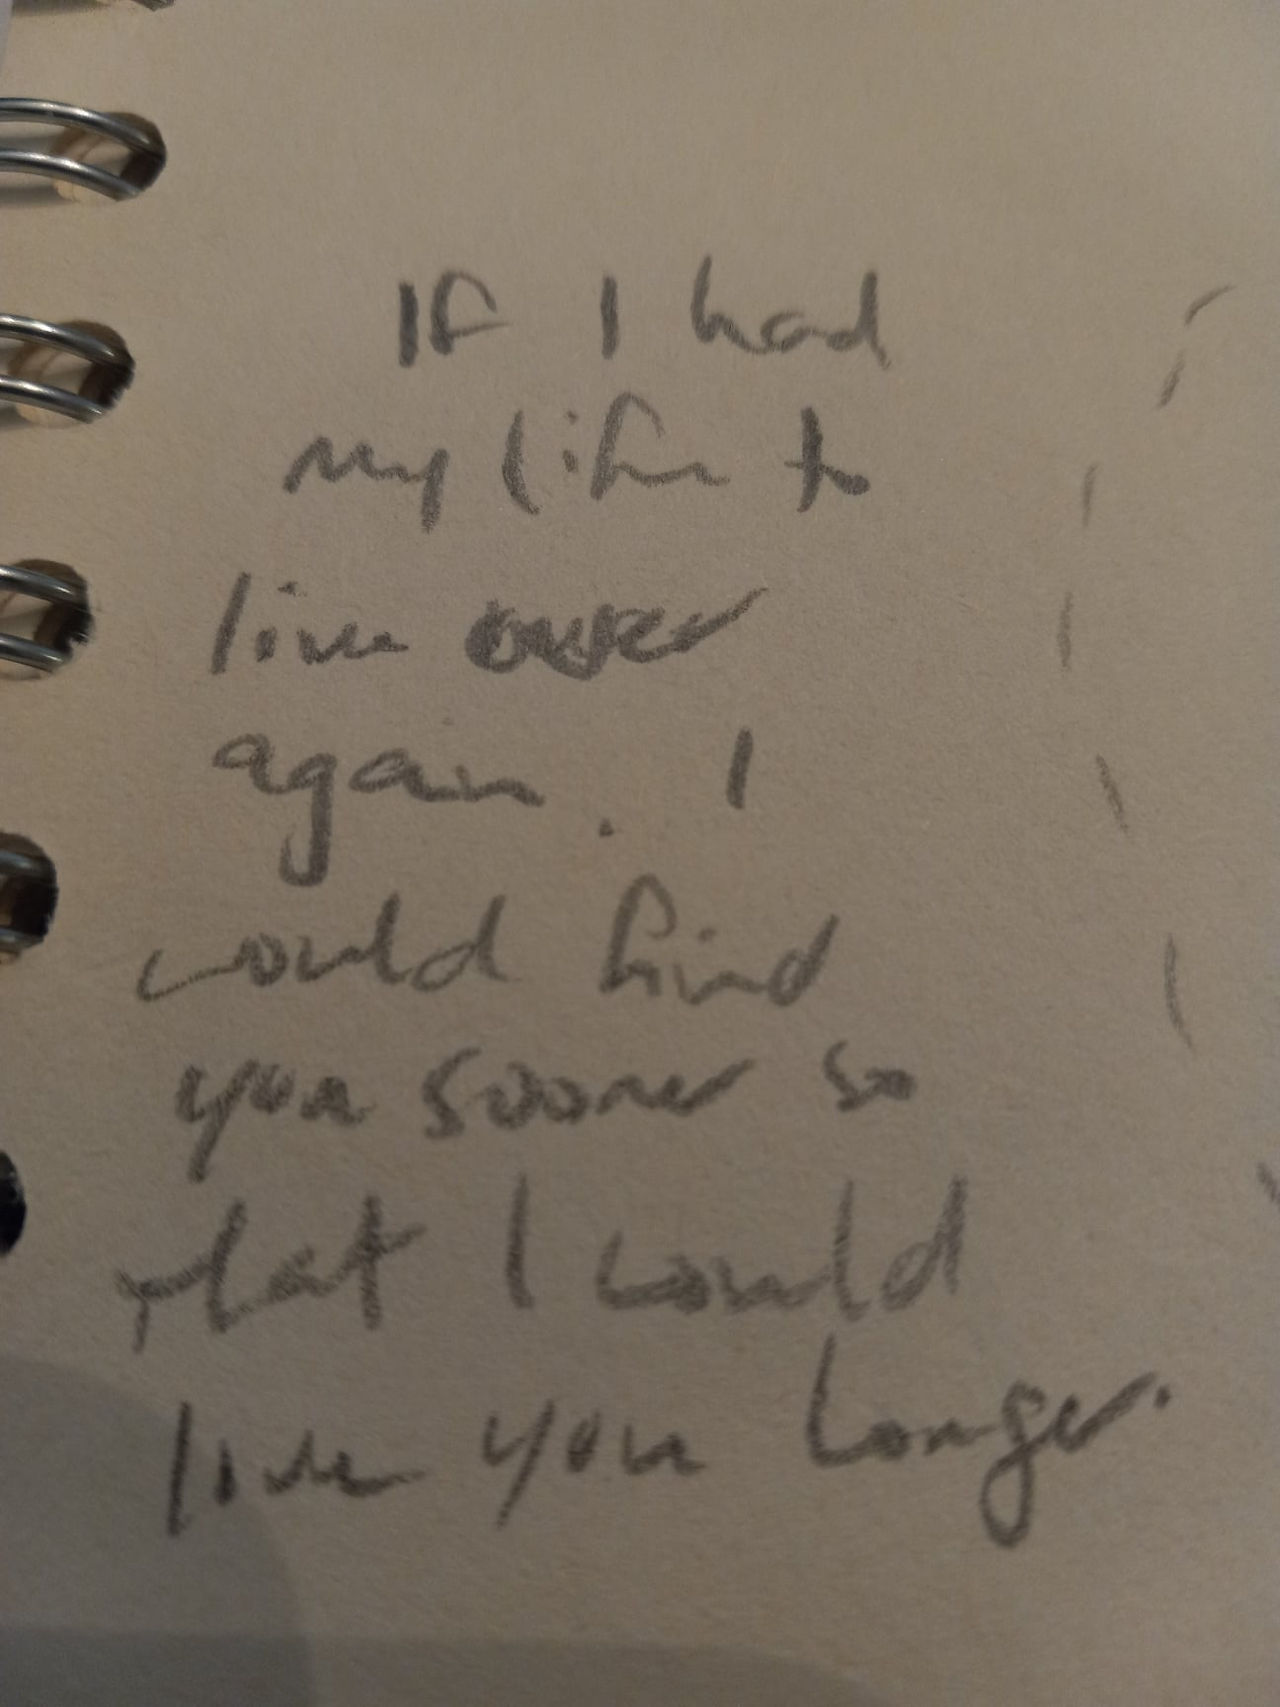 If I had
my life to
live over
again. I
would find
you sooner so
that I could
live you longer.